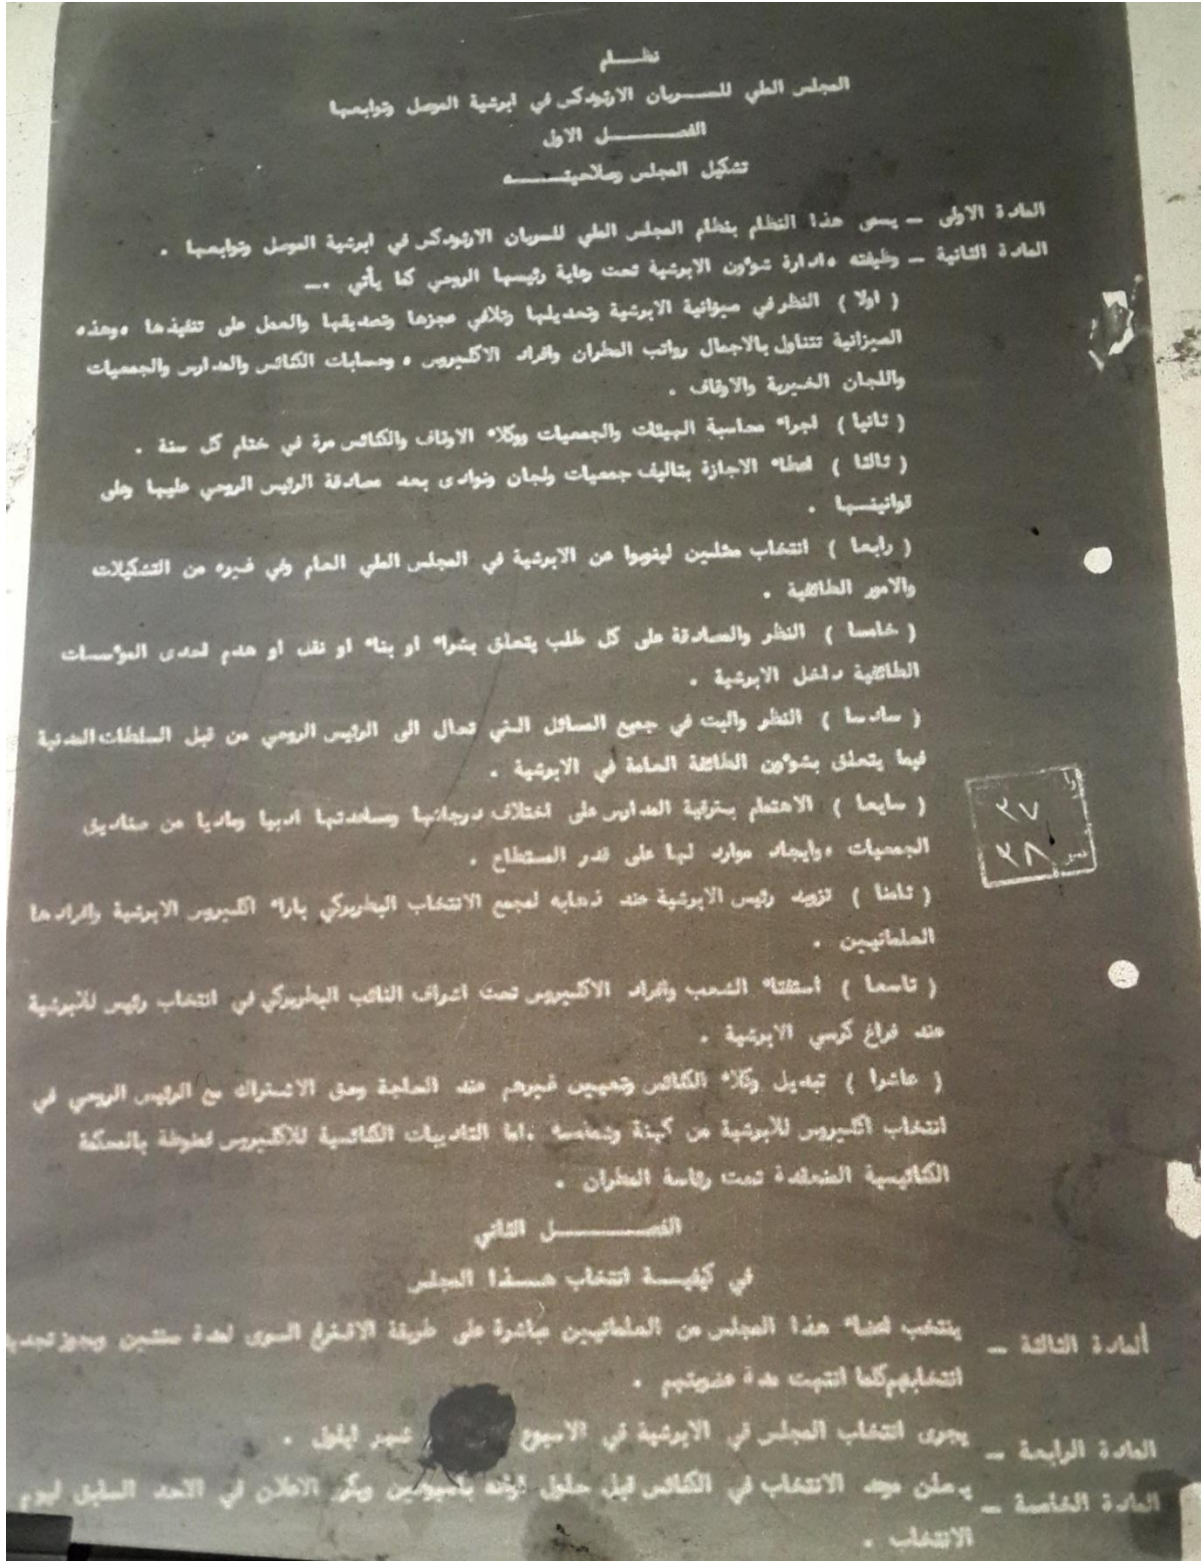 نظـــام
المجلس الملي للـــسريان الارثودكس في ابرشية الموصل وتوابعها
الفصـــــل الاول
تشكيل المجلس وصلاحيتـــــه
المادة الاولى ــ يسمى هذا النظام بنظام المجلس الملي للسريان الارثودكس في ابرشية الموصل وتوابعها .
المادة الثانية ــ وظيفته ، ادارة شوءون الابرشية تحت رعاية رئيسها الروحي كما يأتي .ــ
( اولا ) النظر في ميزانية الابرشية وتعديلها وتلافي عجزها وتصديقها والعمل على تنفيذها ، وهذه
الميزانية تتناول بالاجمال رواتب المطران وافراد الاكليروس ، وحسابات الكنائس والمدارس والجمعيات
واللجان الخيرية والاوقاف .
( ثانيا ) اجراء محاسبة الهيئات والجمعيات ووكلاء الاوقاف والكنائس مرة في ختام كل سنة .
( ثالثا ) اعطاء الاجازة بتاليف جمعيات ولجان ونوادى بعد مصادقة الرئيس الروحي عليها وعلى
قوانينـها .
( رابعا ) انتخاب ممثلين لينوبوا عن الابرشية في المجلس الملي العام وفي غيره من التشكيلات
والامور الطائفية .
( خامسا ) النظر والمصادقة على كل طلب يتعلق بشراء او بناء او نقد او هدم احدى الموءسسات
الطائفية داخل الابرشية .
( سادسا ) النظر والبت في جميع المسائل التي تحال الى الرئيس الروحي من قبل السلطات المدنية
فيما يتعلق بشوءون الطائفة العامة في الابرشية .
( سابعا ) الاهتمام بترقية المدارس على اختلاف درجاتها ومساعدتها ادبيا وماديا من صناديق
الجمعيات ، وايجاد موارد لها على قدر المستطاع .
٢٧
٢٨
( ثامنا ) تزويد رئيس الابرشية عند ذهابه لمجمع الانتخاب البطريركي باراء اكليروس الابرشية وافرادها
العلمانيين .
( تاسعا ) استفتاء الشعب وافراد الاكليروس تحت اشراف النائب البطريركي في انتخاب رئيس للابرشية
عند فراغ كرسي الابرشية .
( عاشرا ) تبديل وكلاء الكنائس وتعيين غيرهم عند الحاجة وحق الاشتراك مع الرئيس الروحي في
انتخاب اكليروس للابرشية من كهنة وشمامسه . اما التاديبات الكنائسية للاكليروس فمنوطة بالمحكمة
الكنائيسية المنعقدة تحت رئاسة المطران .
الفصـــــل الثاني
في كيفيـة انتخاب هـــذا المجلس
المادة الثالثة ــ ينتخب اعضاء هذا المجلس من العلمانيين مباشرة على طريقة الاقتراع السرى لمدة سنتين ويجوز تجديد
انتخابهم كلما انتهت مدة عضويتهم .
المادة الرابعة ــ يجرى انتخاب المجلس في الابرشية في الاسبوع شهر ايلول .
المادة الخامسة ــ يعلن موعد الانتخاب في الكنائس قبل حلول اوانه باسبوعين ويكرر الاعلان في الاحد السابق ليوم
الانتخاب .